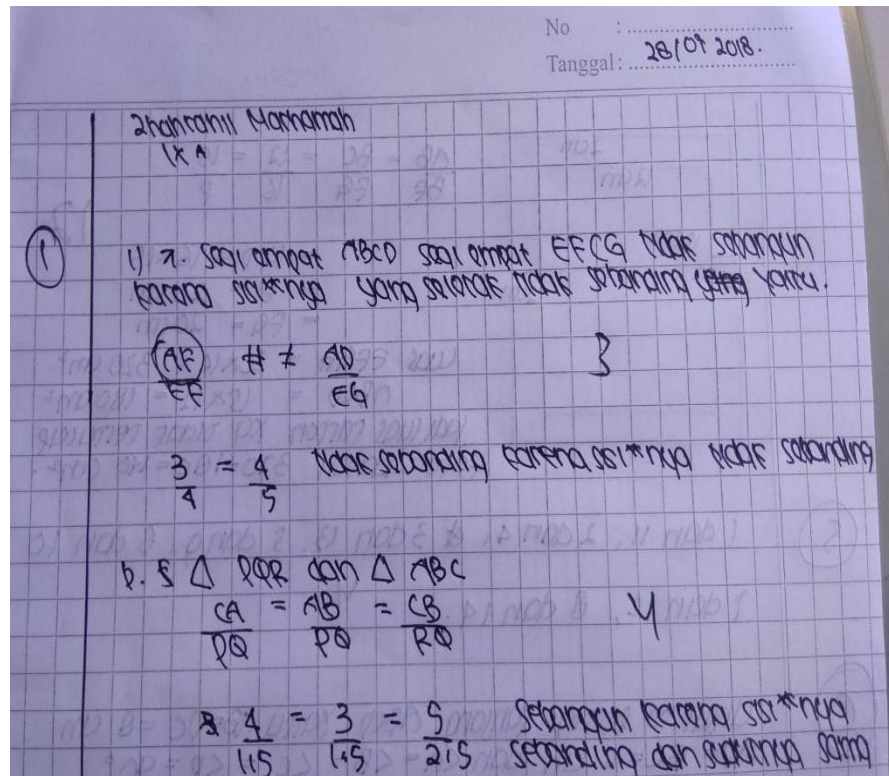 No : ....................
Tanggal : 28/07 2018.
IX A
①
1) a. Segi empat ABCD segi empat EFCG tidak sebangun
karena sisi**nya yang seletak tidak sebanding yang yaitu.
AF/EF ≠ AD/EG
3
3/4 = 4/5 tidak sebanding karena sisi**nya tidak sebanding
b. △ PQR dan △ ABC
CA/PQ = AB/PQ = CB/RQ
4
4/1+5 = 3/1+5 = 5/2+5 Sebangun karena sisi**nya
sebanding dan sudutnya sama